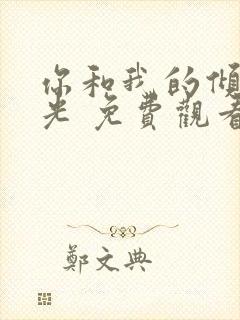 你和我的傾
光 免費觀看
鄭文典